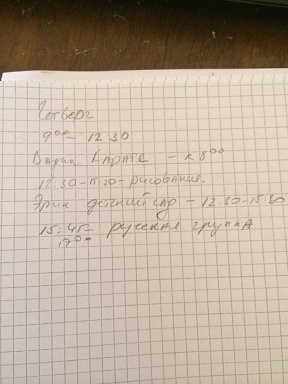 Четверг
9⁰⁰ – 12:30
Карате – к 8⁰⁰
12:30 – 15:30 – рисование.
Эрик детский сад – 12:30 – 15:30
15:45 – русская группа
17⁰⁰